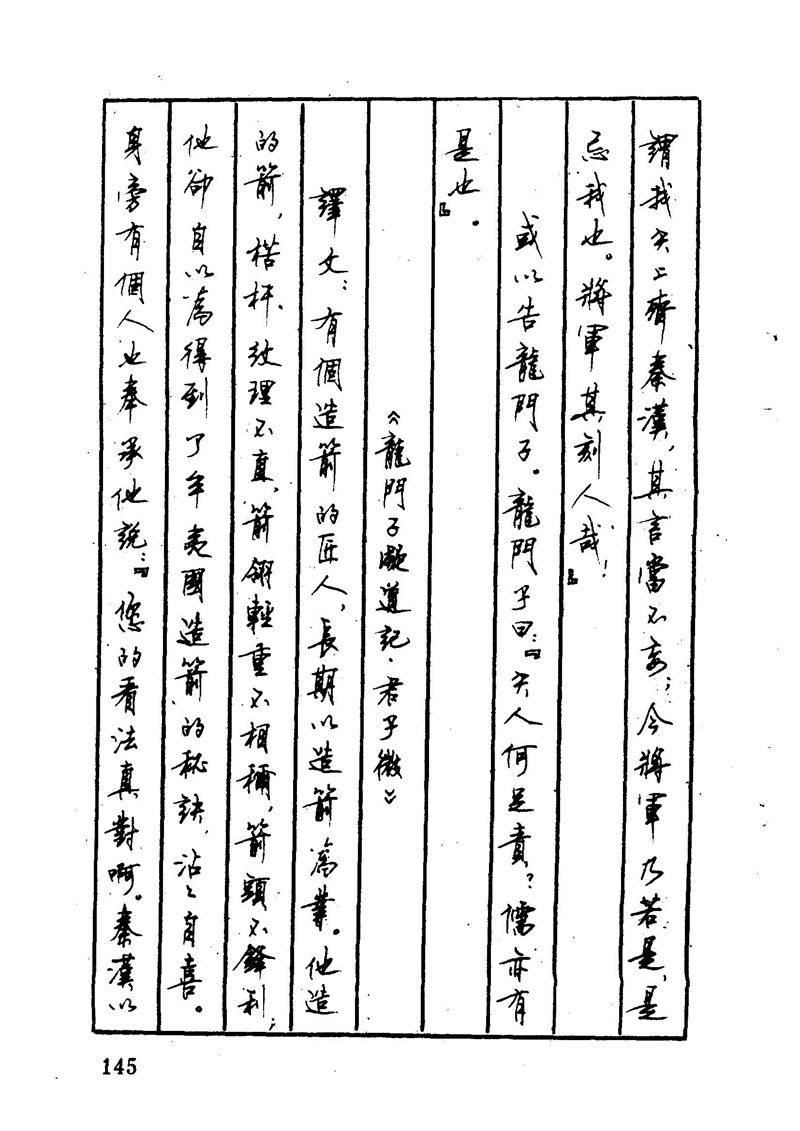 謂我矢上齊秦漢，其言當不妄；今將軍乃若是，是
忌我也。將軍其刻人哉！』
或以告龍門子。龍門子曰：『矢人何足責？儒亦有
是也』。
《龍門子凝道記·君子微》
譯文：有個造箭的匠人，長期以造箭為業。他造
的箭，楛杆、紋理不直，箭翎輕重不相稱，箭頭不鋒利；
他卻自以為得到了牟夷國造箭的秘訣，沾沾自喜。
身旁有個人也奉承他說：『您的看法真對啊。秦漢以
145